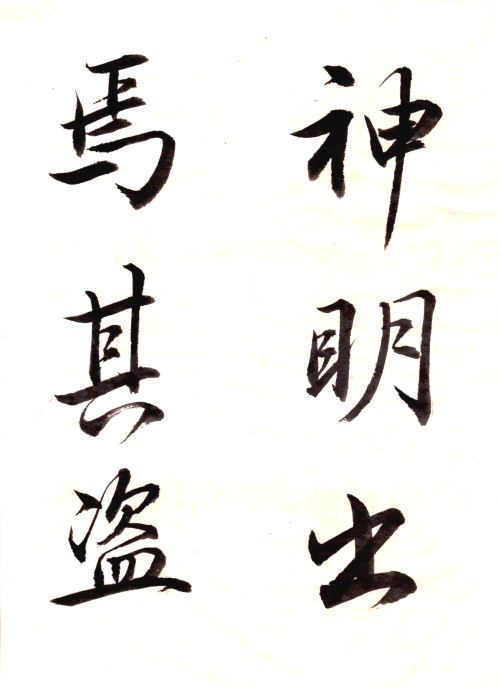 神明出
焉其盗